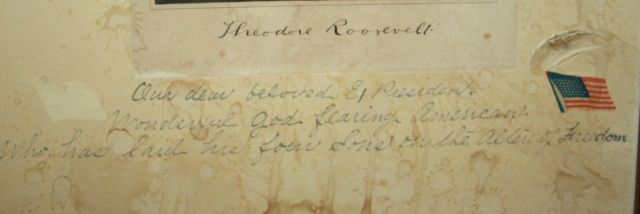 Theodore Roosevelt.
Our dear beloved Ex President.
Wonderful God fearing American.
Who, has laid his four Sons on the Alter of Freedom